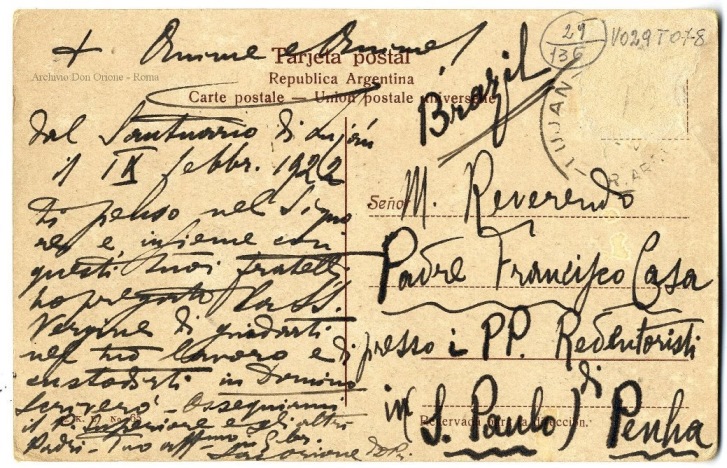 + Anime e Anime!
Tarjeta postal
Archivio Don Orione - Roma
Republica Argentina
Carte postale — Union postale universelle
29
136
V029T078
Brazil
LUJAN
R. ARG
dal Santuario di Luján
il IX febbr. 1922
Ti penso nel Signo
re e insieme con
questi tuoi fratelli
ho pregato la SS.
Vergine di guidarti
nel tuo lavoro e di
custodirti in Domino
Scriverò - Ossequiami
il P. Superiore e gli altri
Padri - Tuo aff.mo
Sac. Orione D. P.
Señor
M. Reverendo
Padre Francisco Casa
presso i PP. Redentoristi
di
in (S. Paulo) Penha
Reservada para la dirección.